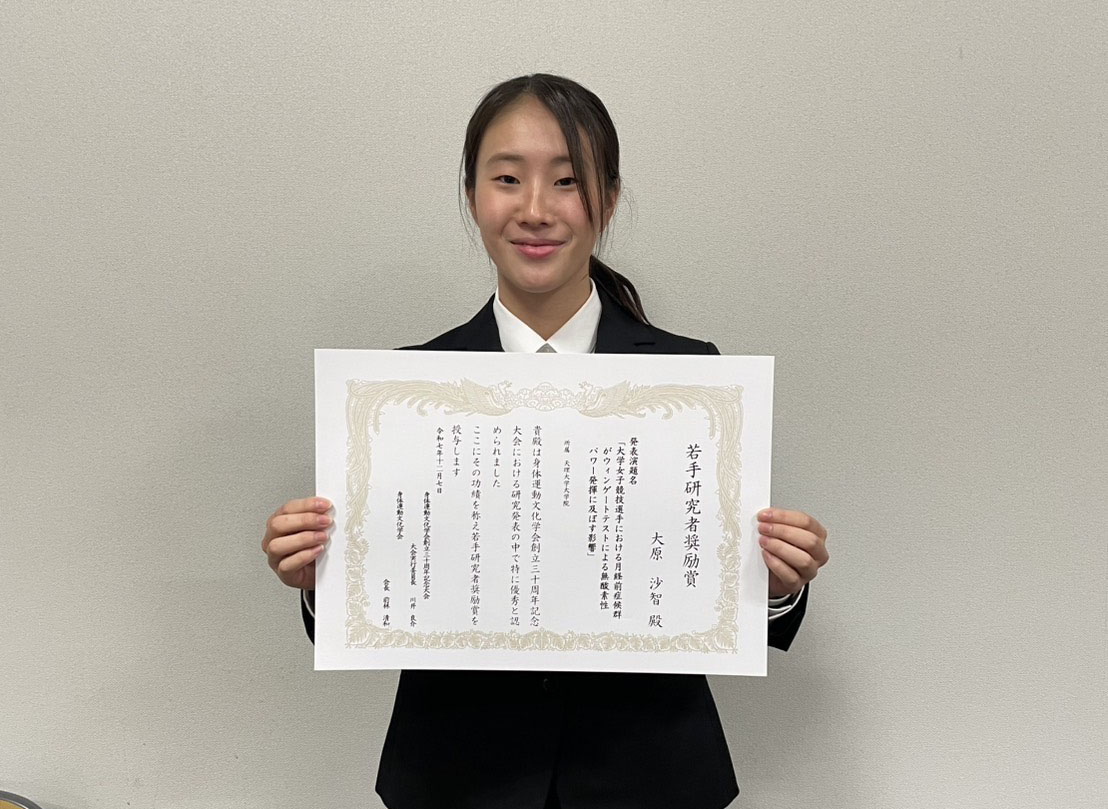 若手研究者奨励賞
大原 沙智 殿
発表演題名
「大学女子競技選手における月経前症候群
がウィンゲートテストによる無酸素性
パワー発揮に及ぼす影響」
所属 天理大学大学院
貴殿は身体運動文化学会創立三十周年記念
大会における研究発表の中で特に優秀と認
められました
ここにその功績を称え若手研究者奨励賞を
授与します
令和七年十二月七日
身体運動文化学会創立三十周年記念大会
大会実行委員長 川井 良介
身体運動文化学会
会長 前林 清和